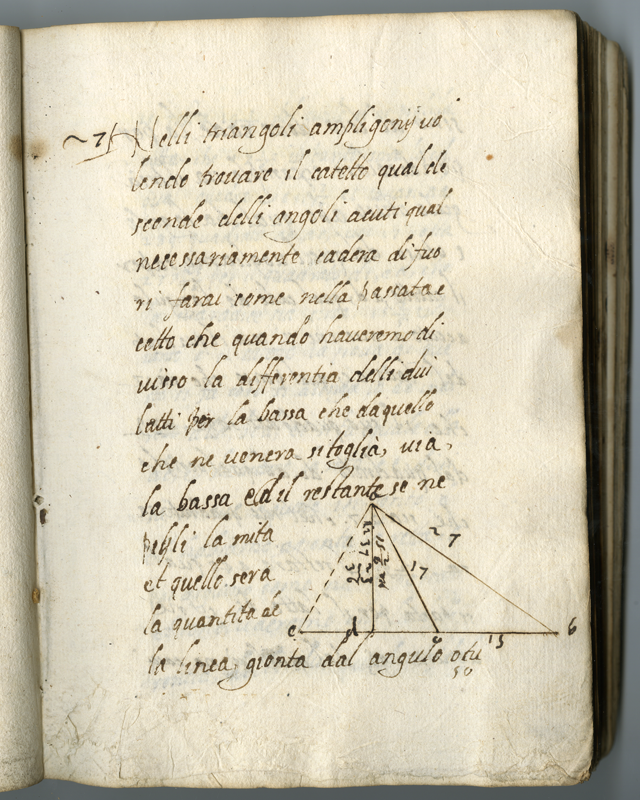 27 Nelli triangoli ampligonij uo
lendo trouare il catetto qual de
scende delli angoli acuti qual
necessariamente cadera di fuo
ri farai come nella passata e
cetto che quando haueremo di
uisso la differentia delli dui
latti per la bassa che da quello
che ne uenera si toglia, uia,
la bassa ed il restante se ne
pigli la mita
et quello sera
la quantita de
la linea gionta dal angulo otu
so
27
17
15
c
d
b